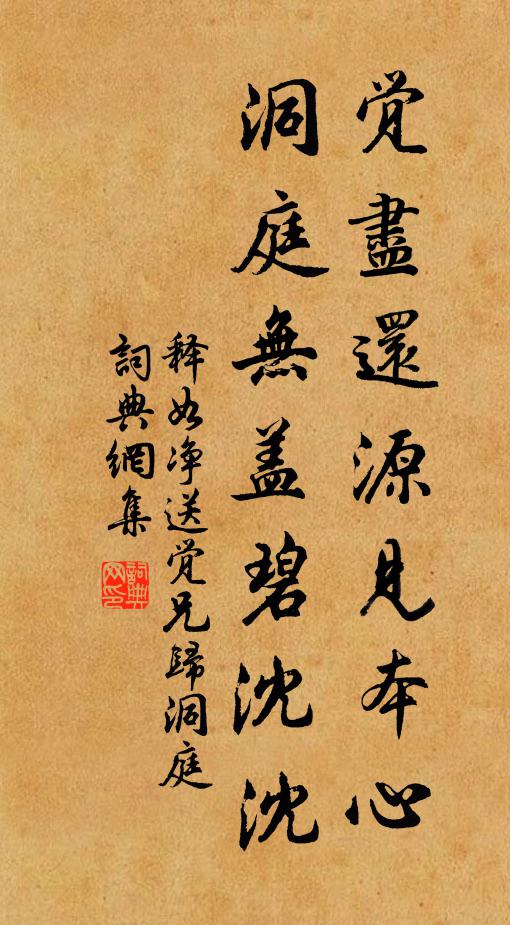 觉盡還源見本心
洞庭無盖碧沈沈
释如净送觉兄歸洞庭
詞典網集
詞典网印